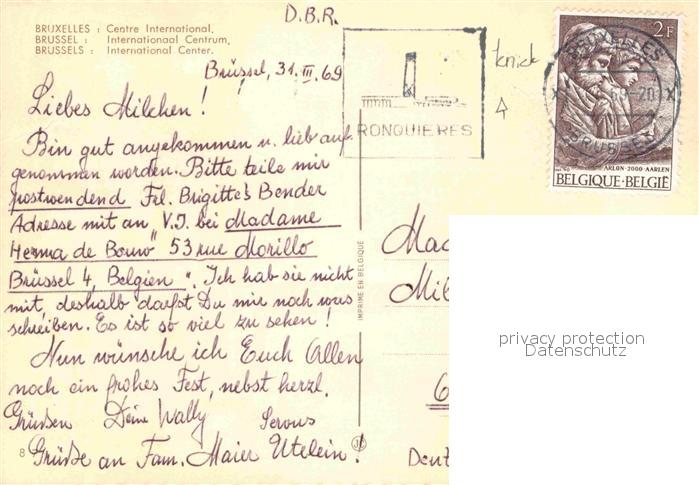 D.B.R.
BRUXELLES : Centre International.
BRUSSEL : Internationaal Centrum,
BRUSSELS : International Center.
Brüssel, 31. III. 69
Liebes Milchen!
Bin gut angekommen u. lieb auf-
genommen worden. Bitte teile mir
postwendend Frl. Brigitte's Bender
Adresse mit an V.J. bei Madame
Herma de 53 rue Morillo
Brüssel 4, Belgien". Ich hab sie nicht
mit, deshalb darfst Du mir noch was
schreiben. Es ist so viel zu sehen!
Nun wünsche ich Euch Allen
noch ein frohes Fest, nebst herzl.
Grüßen Deine Wally Servus
Grüße an Fam. Maier Utelein!
8
RONQUIERES
knick
2F
BRUXELLES
69-20
BRUSSEL
ARLON-2000-AARLEN
BELGIQUE-BELGIË
IMPRIME EN BELGIQUE
Mad
Mil
6
Deut
privacy protection
Datenschutz